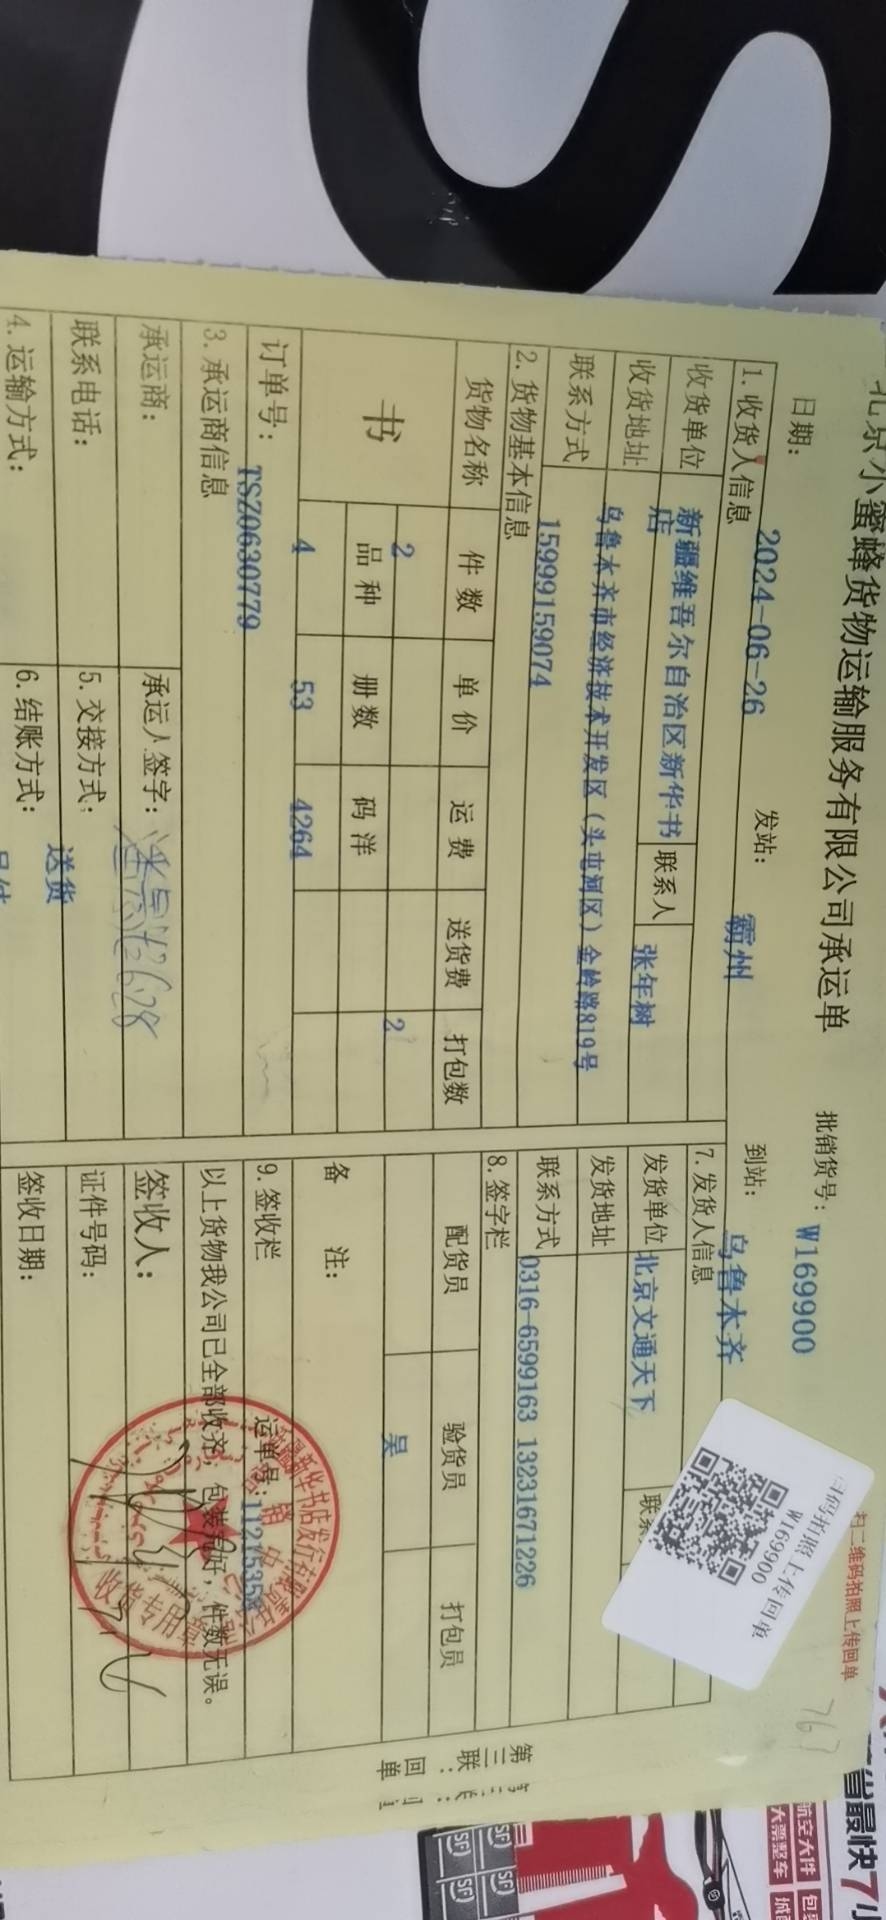 北京小蜜蜂货物运输服务有限公司承运单
批销货号：W169900
扫二维码拍照上传回单
扫码拍照上传回单
W169900
日期：2024-06-26 发站：霸州 到站：乌鲁木齐
1.收货人信息
收货单位 新疆维吾尔自治区新华书店 联系人 张年树
收货地址 乌鲁木齐市经济技术开发区（头屯河区）金岭路819号
联系方式 15999159074
2.货物基本信息
货物名称 件数 单价 运费 送货费 打包数
书 2 2
品种 册数 码洋
4 53 4264
订单号：TSZ0630779
3.承运商信息
承运商： 承运人签字：
联系电话： 5.交接方式：送货
4.运输方式： 6.结账方式：
7.发货人信息
发货单位 北京文通天下 联系
发货地址
联系方式 0316-6599163 13231671226
8.签字栏
配货员 验货员 打包员
吴
备 注：
9.签收栏 运单号：
以上货物我公司已全部收齐，包装完好，件数无误。
签收人：
证件号码：
签收日期：
收货专用章
第三联：回单
767
航空大件
大票整车
SF
SF
SF
SF